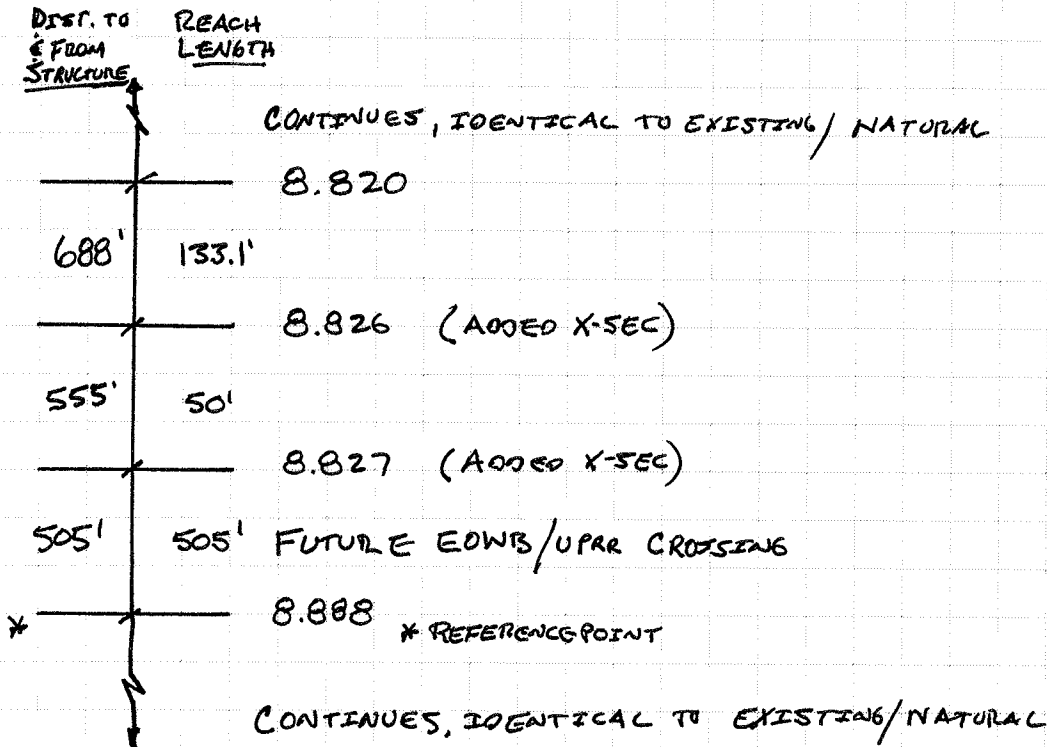 DIST. TO REACH
& FROM LENGTH
STRUCTURE
CONTINUES, IDENTICAL TO EXISTING/NATURAL
8.820
688' 133.1'
8.826 (ADDED X-SEC)
555' 50'
8.827 (ADDED X-SEC)
505' 505' FUTURE EOWB/UPRR CROSSING
* 8.888 * REFERENCE POINT
CONTINUES, IDENTICAL TO EXISTING/NATURAL